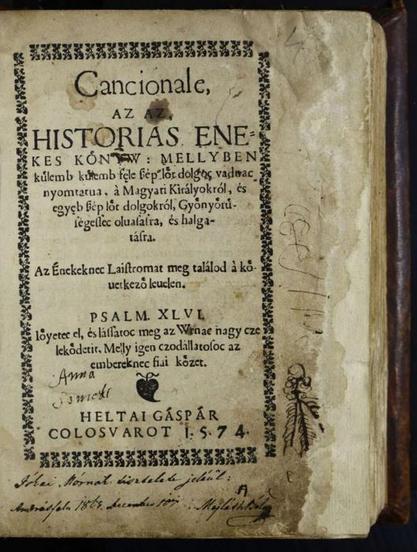 Cancionale,
AZ AZ,
HISTORIAS ENE-
KES KÖNYW: MELLYBEN
külemb kütemb féle ßép lőt dolgoc vadnac
nyomtatua, à Magyari Királyokról, és
egyéb ßép lőt dolgokról, Gyönyörü-
ségessec oluasásra, és halga-
tásra.
Az Énekeknec Laistromat meg találod à kö-
uetkezö leuelen.
PSALM. XLVI.
Iöyetec el, és lássatoc meg az Wrnac nagy cze
lekódetit. Melly igen czodállatosoc az
embereknec fiai közet.
Anna
HELTAI GÁSPÁR
COLOSVAROT 1.5.7 4.